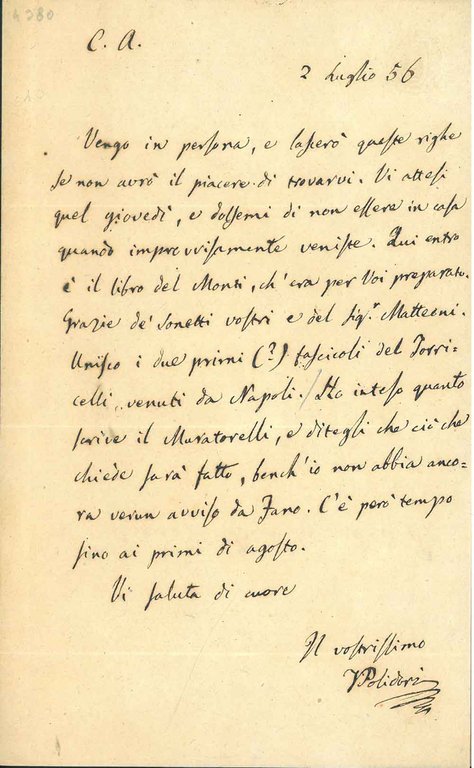 4380
C. A.
2 Luglio 56
Vengo in persona, e lascerò queste righe
se non avrò il piacere di trovarvi. Vi attesi
quel giovedì, e dolsemi di non essere in casa
quando improvvisamente veniste. Qui entro
è il libro del Monti, ch'era per Voi preparato.
Grazie de' sonetti vostri e del Sigr. Matteoni.
Unisco i due primi (?) fascicoli del Torri-
celli, venuti da Napoli. / Ho inteso quanto
scrive il Muratorelli, e ditegli che ciò che
chiede sarà fatto, bench'io non abbia anco=
ra verun avviso da Fano. C'è però tempo
sino ai primi di agosto.
Vi saluta di cuore
Il vostrissimo
Polidori